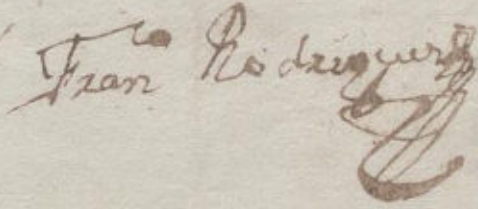 Fran^co Rodriguez